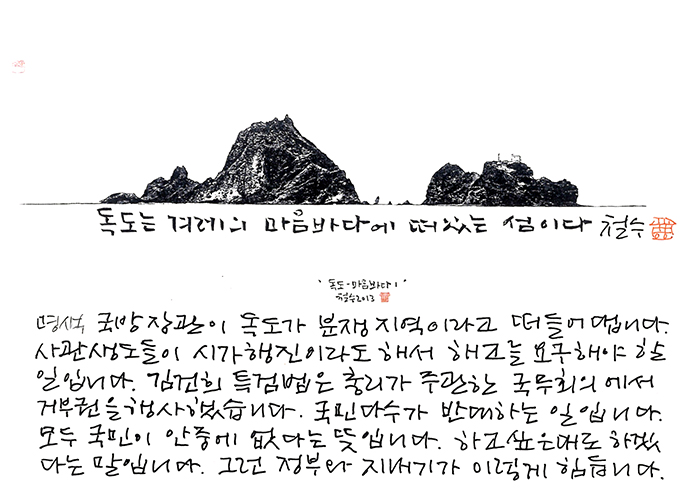 독도는 겨레의 마음바다에 떠있는 섬이다 철수
'독도-마음바다'
철수2013
명색 국방장관이 독도가 분쟁지역이라고 떠들어댑니다.
사관생도들이 시가행진이라도 해서 해고를 요구해야 할
일입니다. 김건희 특검법은 총리가 주관한 국무회의에서
거부권을 행사했습니다. 국민다수가 반대하는 일입니다.
모두 국민이 안중에 없다는 뜻입니다. 하고싶은대로 하겠
다는 말입니다. 그런 정부와 지내기가 이렇게 힘듭니다.